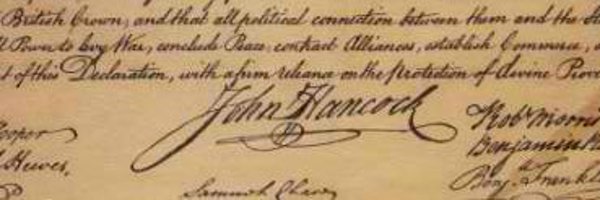 British Crown, and that all political connection between them and the
Power to levy War, conclude Peace, contract Alliances, establish Commerce,
of this Declaration, with a firm reliance on the Protection of divine
John Hancock
Hooper
Hewes,
Samuel Chase
Robt Morris
Benjamin
Benj. Franklin